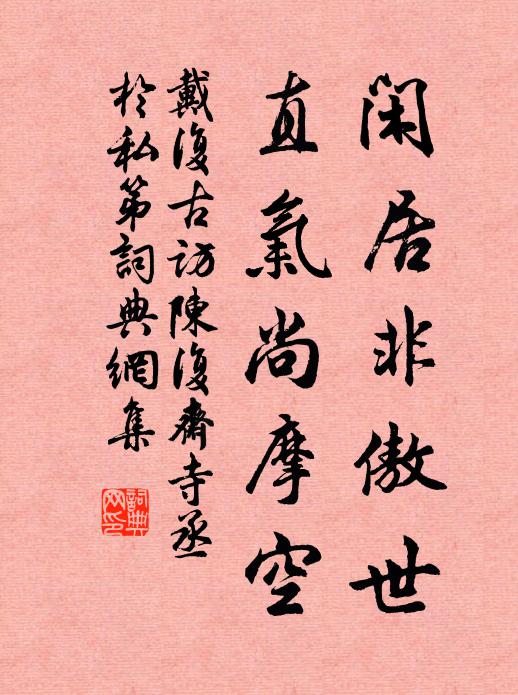 閑居非傲世
直氣尚摩空
戴復古訪陳復齋寺丞
於私第詞典網集
詞典網印